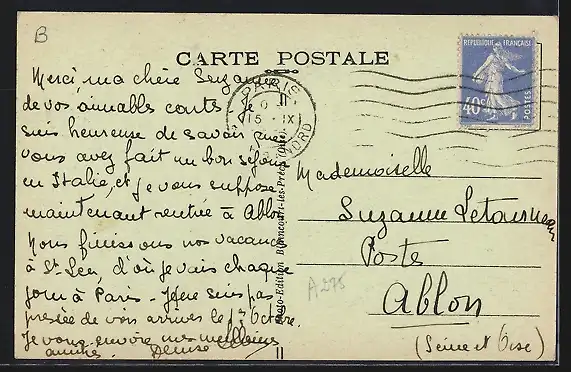 B
CARTE POSTALE
REPUBLIQUE FRANÇAISE
40c
POSTES
PARIS
15 - IX
NORD
Merci, ma chère Suzanne
de vos aimables cartes. Je
suis heureuse de savoir que
vous avez fait un bon séjour
en Italie, et je vous suppose
maintenant rentrée à Ablon
Nous finissons nos vacances
à St Leu, d'où je vais chaque
jour à Paris - Je ne suis pas
pressée de voir arriver le 1er Octobre.
Je vous envoie mes meilleures
amitiés. Denise
Photo-Edition (Oise)
Mademoiselle
Suzanne Letourneau
Postes
Ablon
(Seine et Oise)
A275